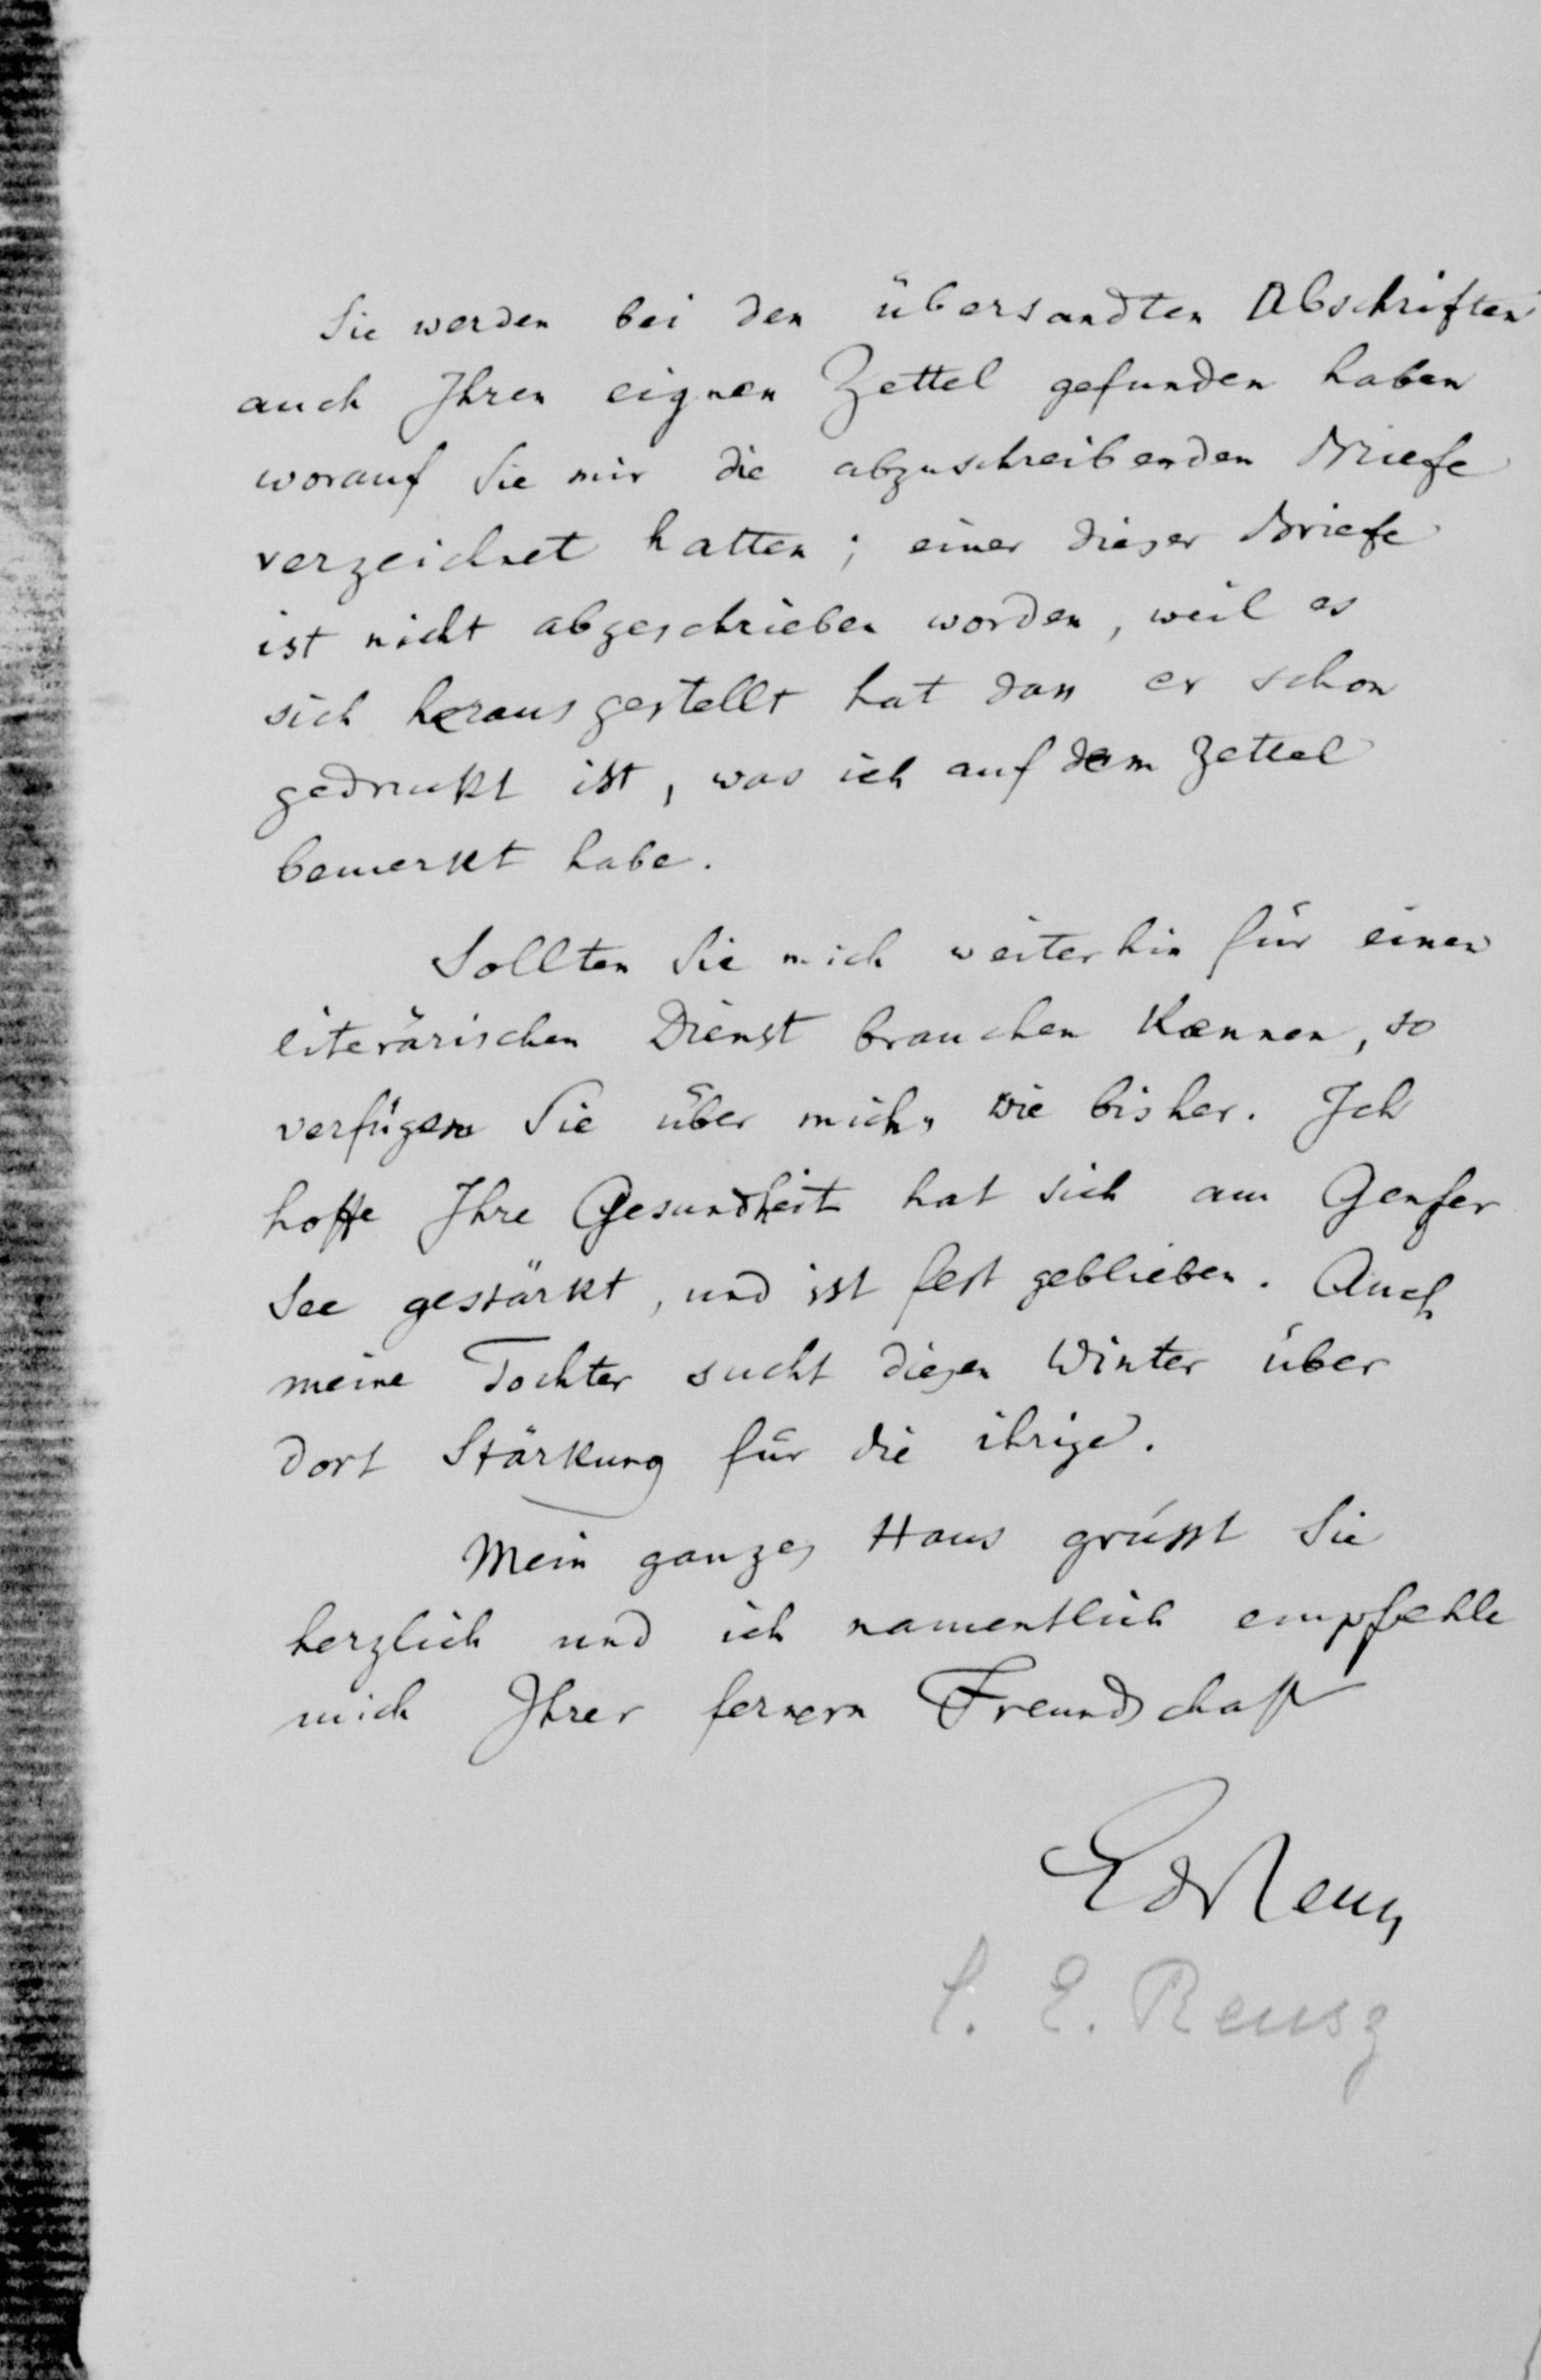 Sie werden bei den übersandten Abschriften
auch Ihren eignen Zettel gefunden haben
worauf Sie mir die abzuschreibenden Briefe
verzeichnet hatten; einer dieser Briefe
ist nicht abgeschrieben worden, weil es
sich herausgestellt hat dass er schon
gedruckt ist, was ich auf dem Zettel
bemerkt habe.
Sollten Sie mich weiterhin für einen
literärischen Dienst brauchen kœnnen, so
verfügen Sie über mich, wie bisher. Ich
hoffe Ihre Gesundheit hat sich am Genfer
See gestärkt, und ist fest geblieben. Auch
meine Tochter sucht diesen Winter über
dort Stärkung für die ihrige.
Mein ganzes Haus grüsst Sie
herzlich und ich namentlich empfehle
mich Ihrer fernern Freundschaft
Ed Reuss
E. Reusz